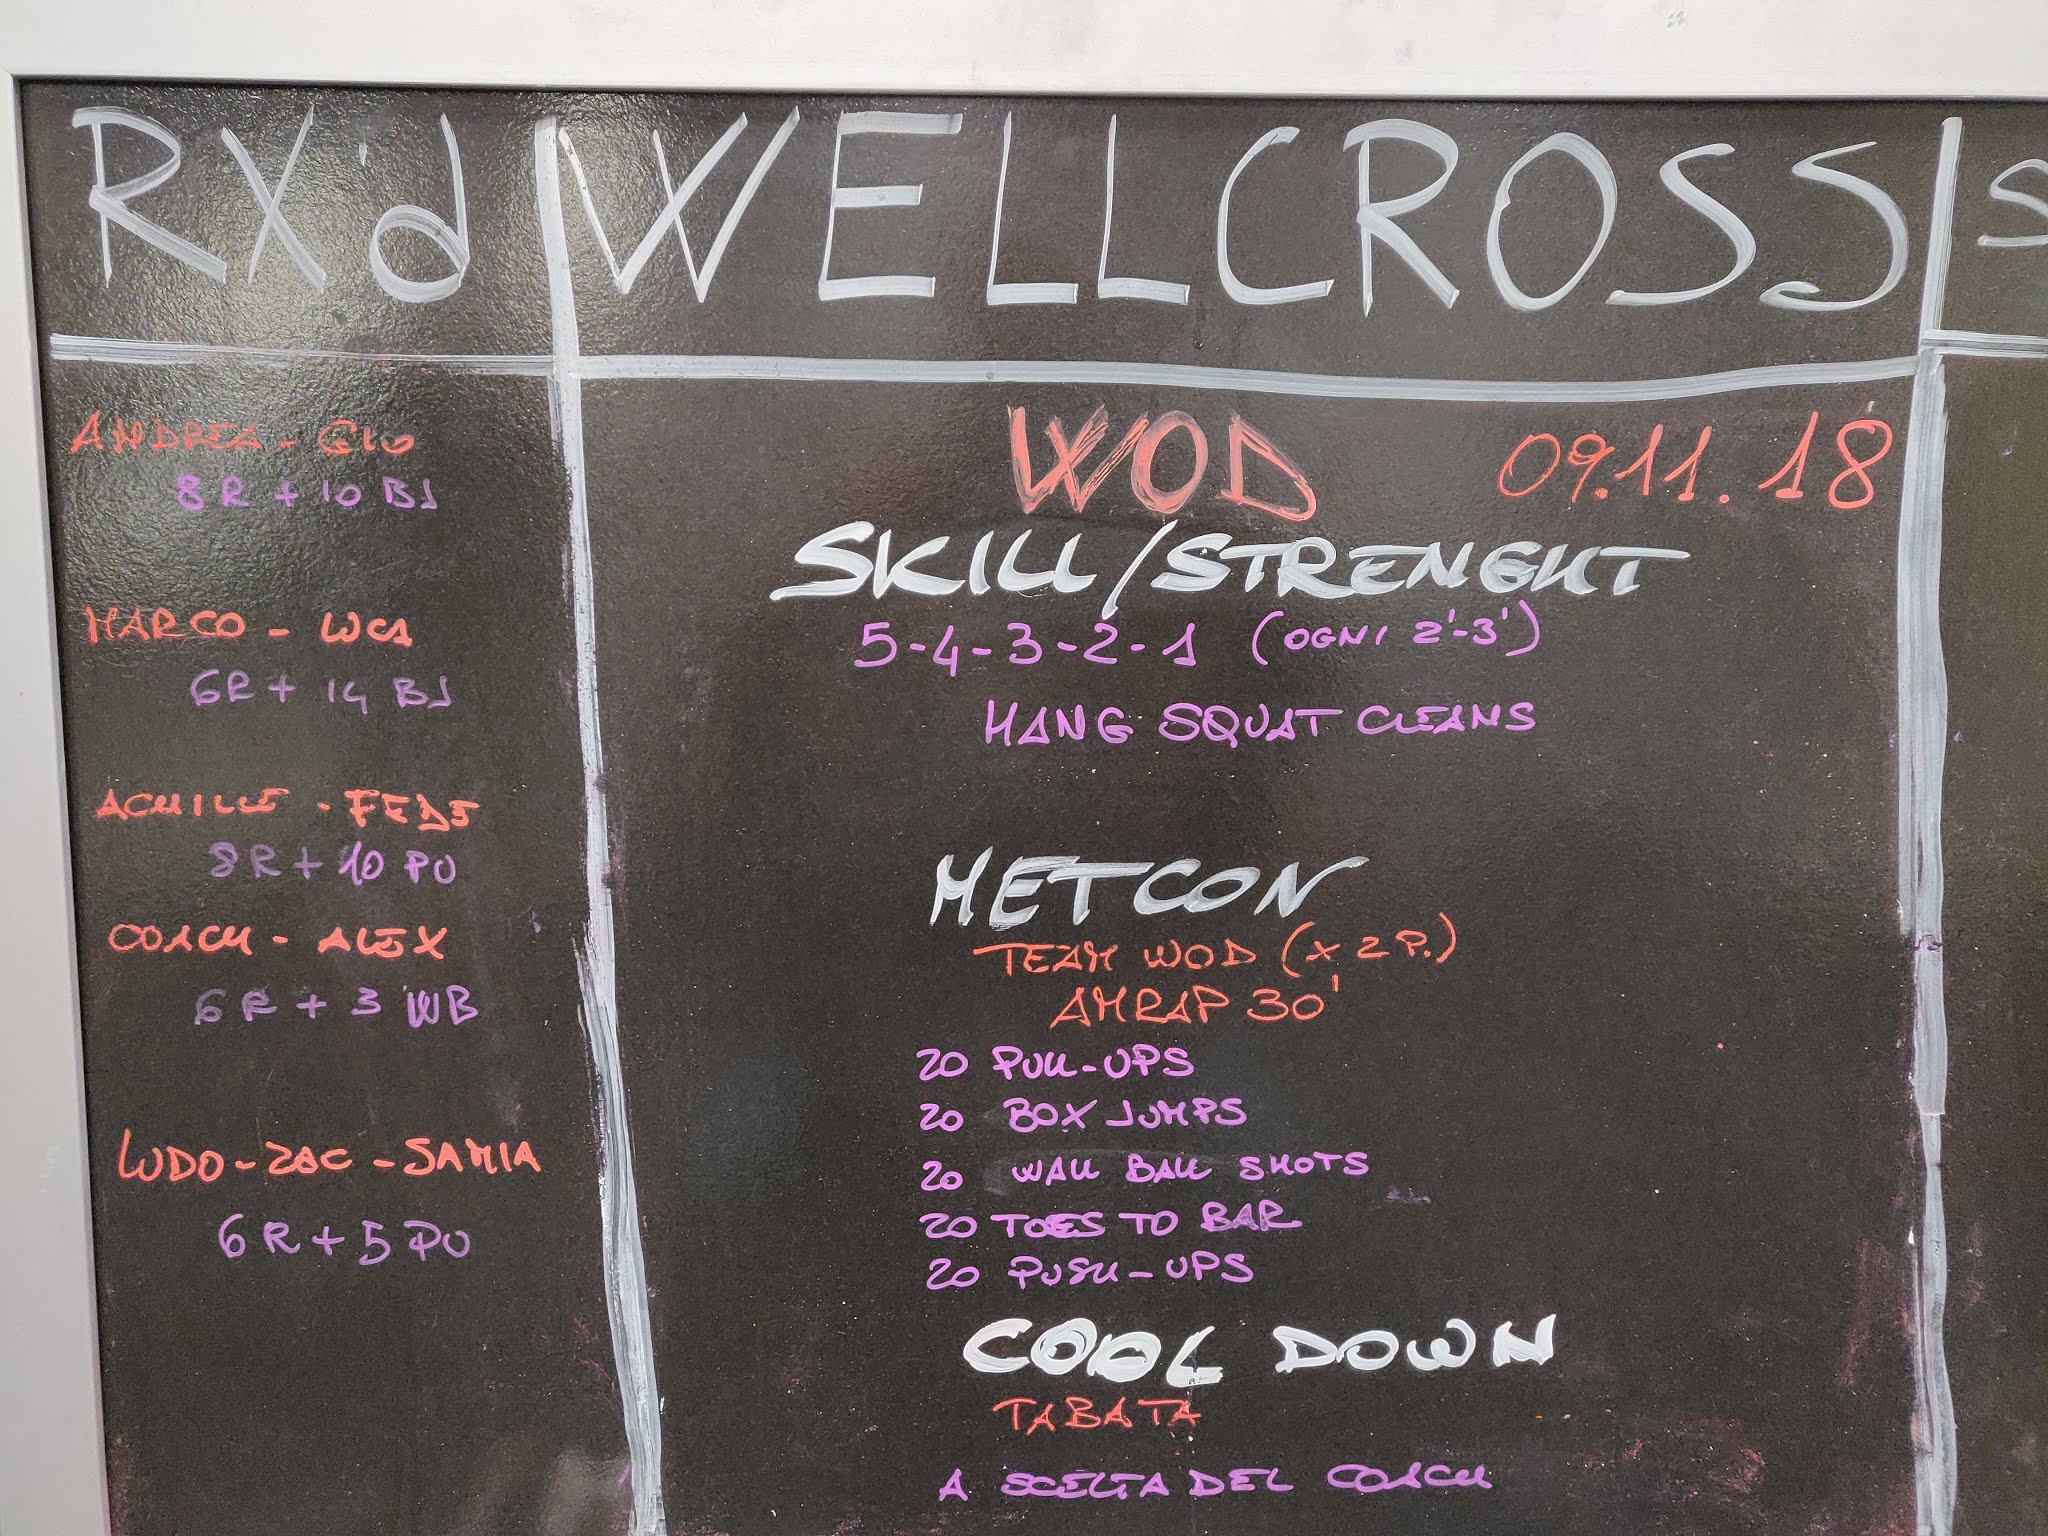 RX'd
ANDREA - GIO
8R + 10 BJ
MARCO - LUCA
6R + 14 BJ
ACHILLE - FEDE
8R + 10 PU
COACH - ALEX
6R + 3 WB
LUDO - ZAC - SAMIA
6R + 5 PU
WELLCROSS
WOD 09.11.18
SKILL/STRENGHT
5-4-3-2-1 (OGNI 2'-3')
HANG SQUAT CLEANS
METCON
TEAM WOD (X 2 P.)
AMRAP 30'
20 PULL-UPS
20 BOX JUMPS
20 WALL BALL SHOTS
20 TOES TO BAR
20 PUSH-UPS
COOL DOWN
TABATA
A SCELTA DEL COACH
S